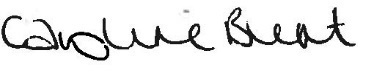 Caroline Brent